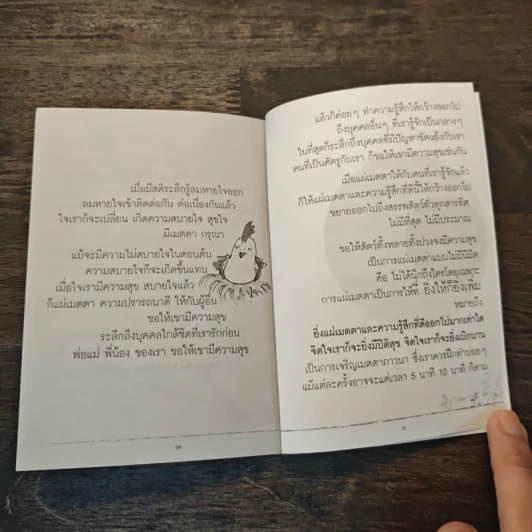 เมื่อมีสติระลึกรู้ลมหายใจออก
ลมหายใจเข้าติดต่อกัน ต่อเนื่องกันแล้ว
ใจเราก็จะเปลี่ยน เกิดความสบายใจ สุขใจ
มีเมตตา กรุณา
แม้จะมีความไม่สบายใจในตอนต้น
ความสบายใจก็จะเกิดขึ้นแทน
เมื่อใจเรามีความสุข สบายใจแล้ว
ก็แผ่เมตตา ความปรารถนาดี ให้กับผู้อื่น
ขอให้เขามีความสุข
ระลึกถึงบุคคลใกล้ชิดที่เรารักก่อน
พ่อแม่ พี่น้อง ของเรา ขอให้เขามีความสุข
แล้วก็ค่อยๆ ทำความรู้สึกให้กว้างออกไป
ถึงบุคคลอื่นๆ ที่เรารู้จักเป็นกลางๆ
ในที่สุดก็ระลึกถึงบุคคลที่มีปัญหาขัดแย้งกับเรา
คนที่เป็นศัตรูกับเรา ก็ขอให้เขามีความสุขเช่นกัน
เมื่อแผ่เมตตาให้กับคนที่เรารู้จักแล้ว
ก็ให้แผ่เมตตาและความรู้สึกที่ดีนี้ให้กว้างออกไป
ขยายออกไปถึงสรรพสัตว์ทั่วทุกสารทิศ
ไม่มีที่สุด ไม่มีประมาณ
ขอให้สัตว์ทั้งหลายทั้งปวงจงมีความสุข
เป็นการแผ่เมตตาแบบไม่มีนิมิต
คือ ไม่ได้นึกถึงใครโดยเฉพาะ
การแผ่เมตตาเป็นการให้ที่ ยิ่งให้ก็ยิ่งเพิ่ม
หมายถึง
ยิ่งแผ่เมตตาและความรู้สึกที่ดีออกไปมากเท่าใด
จิตใจเราก็จะยิ่งมีปิติสุข จิตใจเราก็จะยิ่งเบิกบาน
เป็นการเจริญเมตตาภาวนา ซึ่งเราควรฝึกทำบ่อยๆ
แม้แต่ละครั้งอาจจะแค่เวลา 5 นาที 10 นาที ก็ตาม